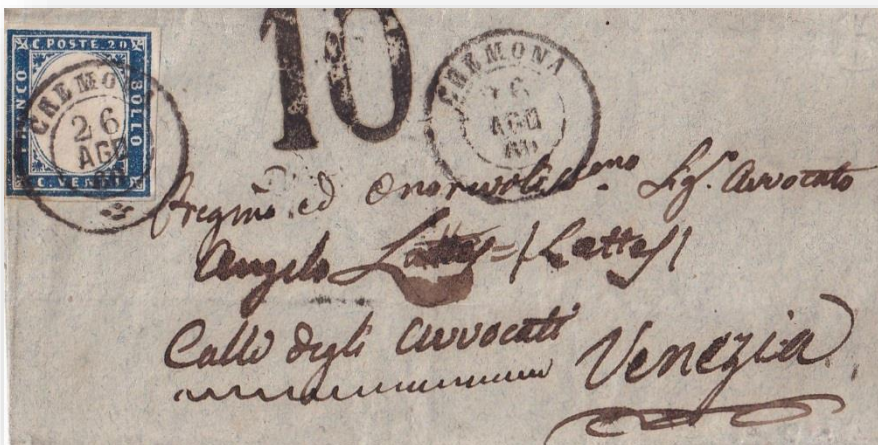 C. POSTE. 20
BOLLO
CREMO
26
AGO
10
CREMONA
26
AGO
60
Pregmo ed Onorevolissmo Sigr. Avvocato
Angelo Lattes = (Lattes)
Calle degli Avvocati
Venezia